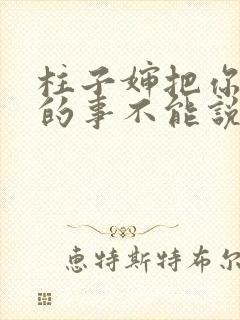 柱子婶把你
的事不能説
恵特斯特布尔